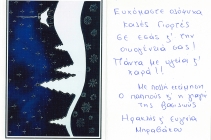 Ευχόμαστε ολόψυχα
καλές Γιορτές
σε εσάς κ' την
οικογένειά σας!
Πάντα με υγεία κ'
χαρά!!
Με πολλή εκτίμηση
Ο παππούς κ' η γιαγιά
της Βασιλικής
Ηρακλής κ' Ευγενία